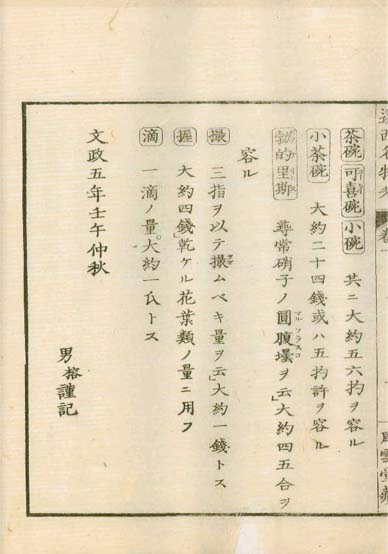 茶碗 可喜碗 小碗 共ニ大約五六扚ヲ容ル
小茶碗 大約二十四錢或ハ五扚許ヲ容ル
勃的里斯 尋常硝子ノ圓腹壜ヲ云」大約四五合ヲ
容ル
撮 三指ヲ以テ撮ムベキ量ヲ云」大約一錢トス
握 大約四錢乾ケル花葉類ノ量ニ用フ
滴 一滴ノ量。大約一瓜トス
文政五年壬午仲秋
男榕謹記